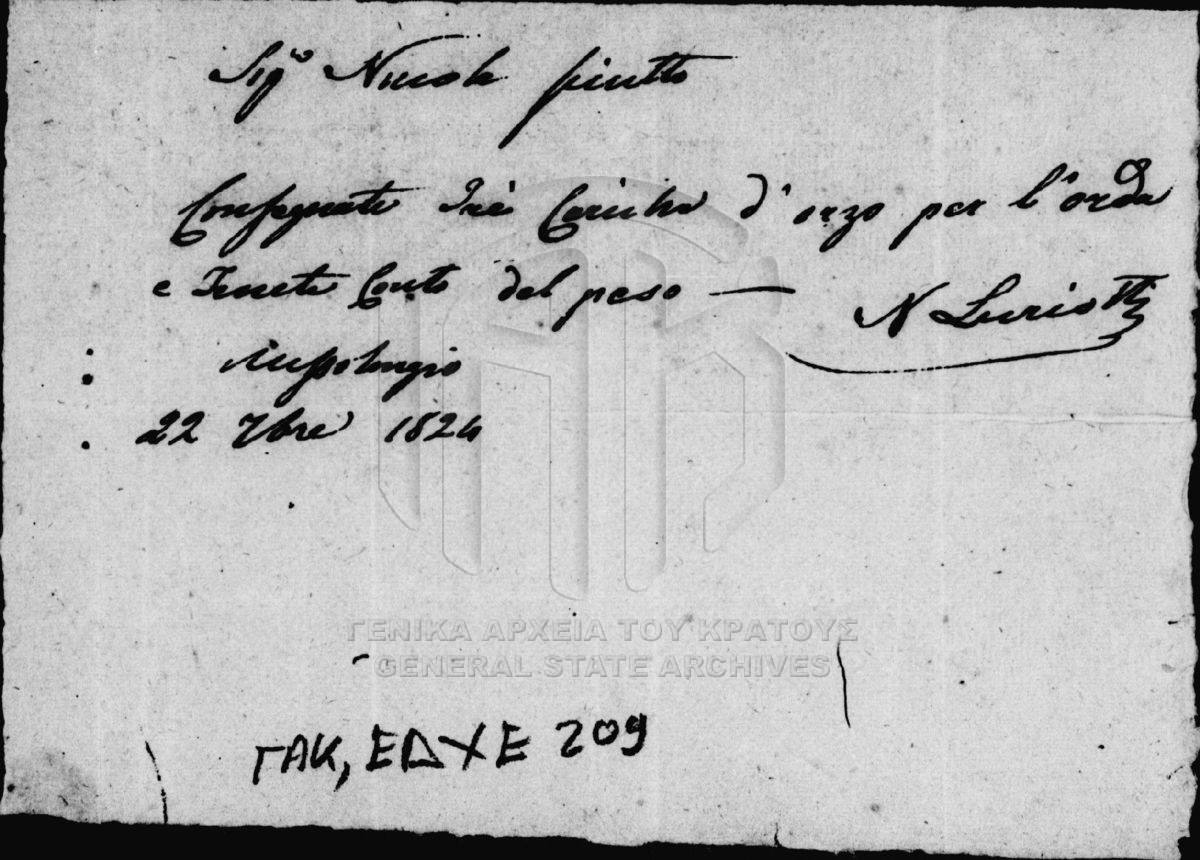 Sigʳᵒ Nicola
Consegnate Tré d'orzo per l'
e Tenete Conto del peso —
N Luriotti
Missolongio
22 7bre 1824
ΓΕΝΙΚΑ ΑΡΧΕΙΑ ΤΟΥ ΚΡΑΤΟΥΣ
GENERAL STATE ARCHIVES
ΓΑΚ, ΕΔΧΕ 209